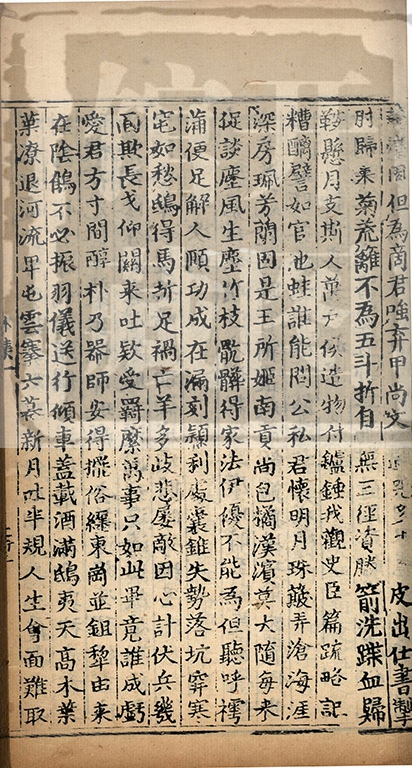 困但為商君強弃甲尚文皮出仕書掣
肘歸來菊荒離不為五斗折自無三徑資勝箭洗蹀血歸
鞍懸月支斯人萬戶侯造物付鑪錘我觀史臣篇疏略記
糟醨譬如官池蛙誰能問公私君懷明月珠簸弄滄海涯
深房珮芳蘭固是王所姬南貢尚包橘漢濱莫大隨每來
促談麈風生塵竹枝骯髒得家法伊優不能為但聽呼摴
蒲便足解人頤功成在漏刻穎利處囊錐失勢落坑穽寒
宅如愁鴟得馬折足禍亡羊多歧悲屢敵因心計伏兵幾
面欺長戈仰關來吐款受羈縻萬事只如此畢竟誰成虧
愛君方寸間醇朴乃器師安得擺俗纏東崗並鉏犁由來
在陰鶴不必振羽儀送行傾車蓋載酒滿鴟夷天高木葉
葉潦退河流卑屯雲搴六幕新月吐半規人生會面難取